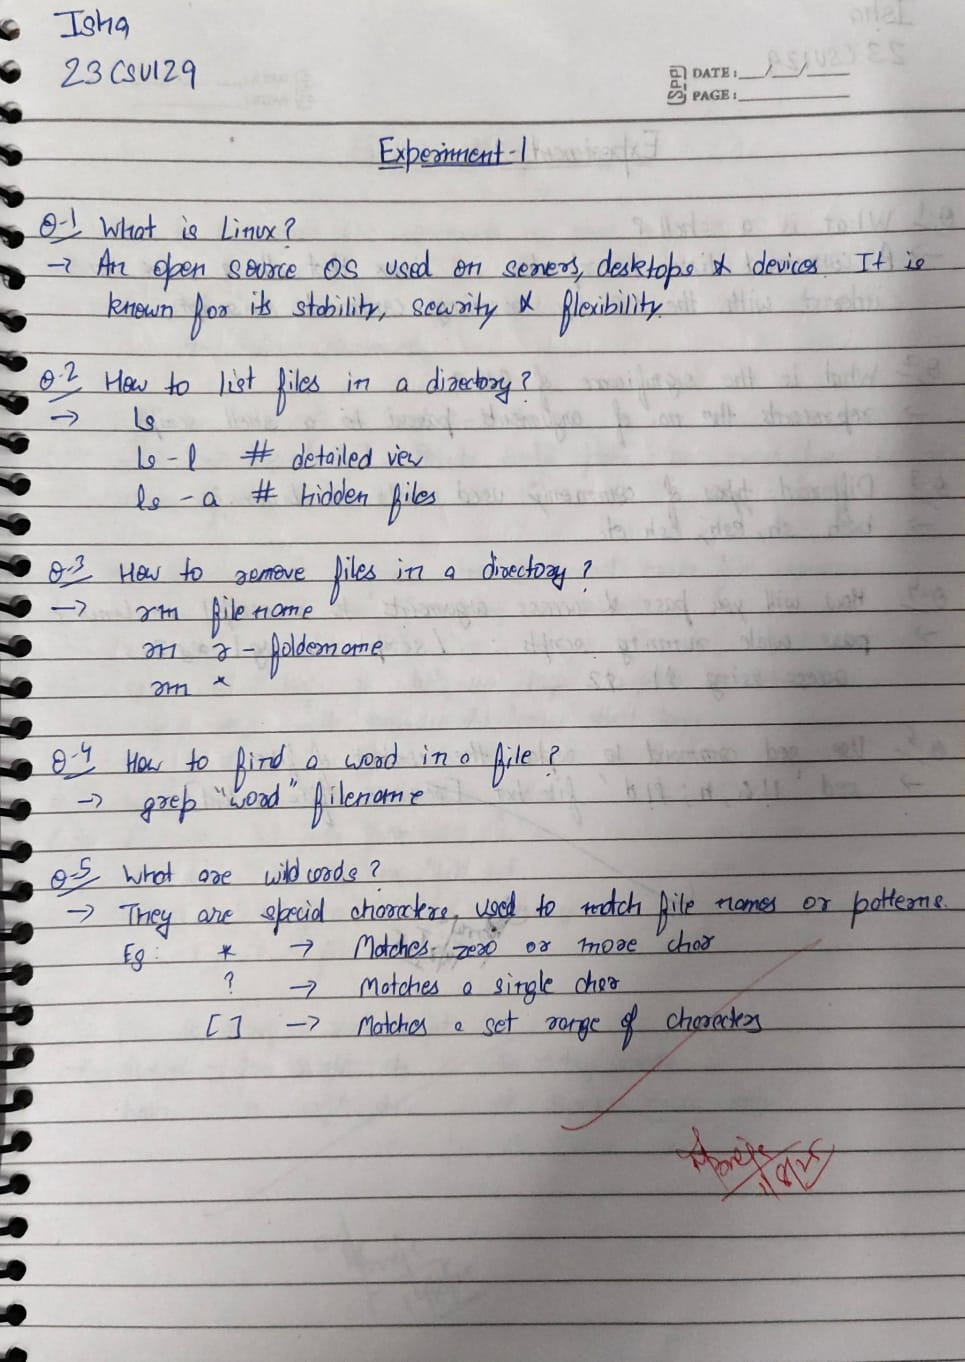 Isha
23CSU129
SPP DATE: __/__/__
PAGE:
Experiment-1
Q-1 What is Linux?
→ An open source OS used on servers, desktops & devices. It is
known for its stability, security & flexibility.
Q-2 How to list files in a directory?
→ ls
ls -l # detailed view
ls -a # hidden files
Q-3 How to remove files in a directory?
→ rm filename
rm r - foldername
rm *
Q-4 How to find a word in a file?
→ grep "word" filename
Q-5 What are wild cards?
→ They are special characters, used to match file names or patterns.
Eg: * → Matches zero or more char
? → Matches a single char
[ ] → Matches a set range of characters
1/8/25